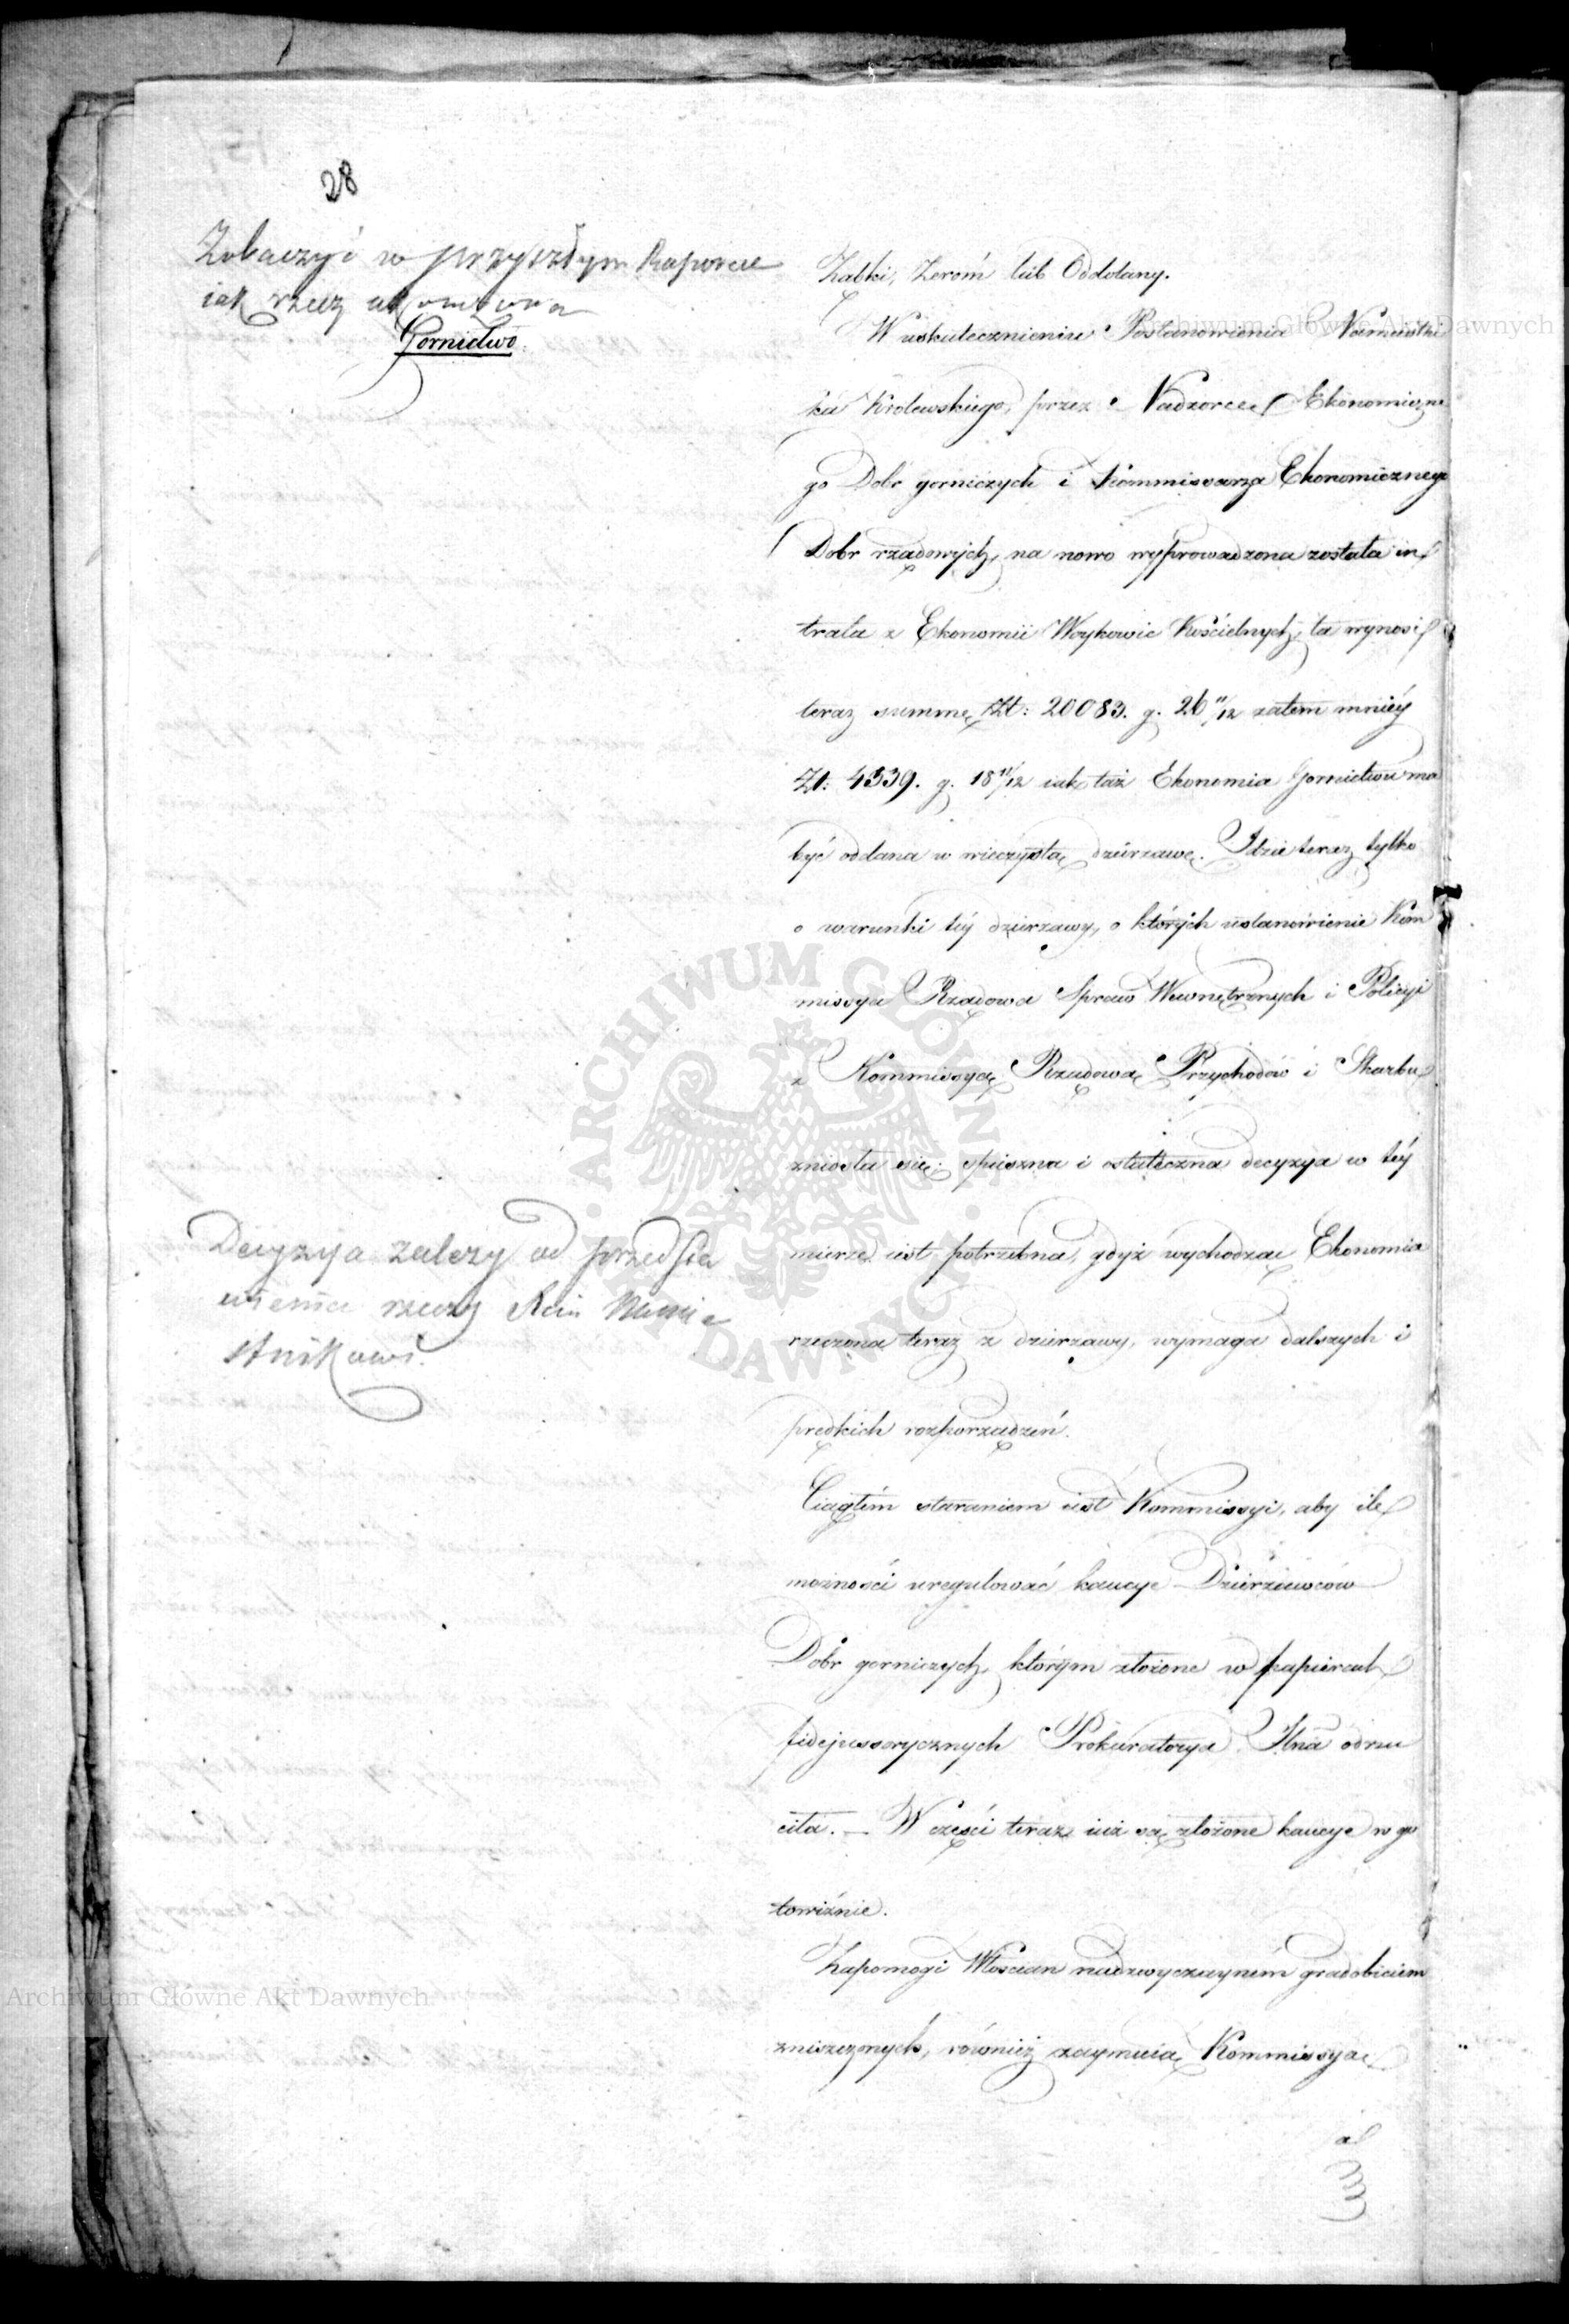 28
Zobaczyć w przyszłym Raporcie
iak rzecz ukończona
Gornictwo.
Ząbki, Zeroń lub Oddolany.
W uskutecznieniu Postanowienia Namiestni
ka Krolewskiego, przez Nadzorcę Ekonomiczne
go Dobr gorniczych i Kommissarza Ekonomicznego
Dobr rządowych, na nowo wyprowadzona została in
trata z Ekonomii Woykowic Kościelnych, ta wynosi
teraz summę Zł: 20083. g. 26 11/12 zatem mniéy
Zł: 4339. g. 18 11/12 iak taż Ekonomia Gornictwu ma
być oddana w wieczystą dzierzawę. Idzie teraz tylko
o warunki téy dzierzawy, o których ustanowienie Kom
missya Rządowa Spraw Wewnętrznych i Policyi
z Kommissyą Rządową Przychodów i Skarbu
zniosła się: spieszna i ostateczna decyzya w téy
mierze iest potrzebna, gdyż wychodząc Ekonomia
rzeczona teraz z dzierzawy, wymaga dalszych i
prędkich rozporządzeń.
Decyzya zalezy od przedsta
wienia rzeczy Xciu Namie
stnikowi.
Ciągłém staraniem iest Kommissyi, aby ile
możności uregulować kaucye Dzierzawców
Dobr gorniczych, którym złożone w papierach
fidejussorycznych Prokuratorya Jlna odrzu
ciła. — W części teraz iuż są złożone kaucye w go
towiźnie.
Zapomogi Włościan nadzwyczayném gradobiciem
zniszczonych, również zaymuią Kommissyą
Archiwum Główne Akt Dawnych
Archiwum Główne Akt Dawnych
ARCHIWUM GŁÓWNE AKT DAWNYCH